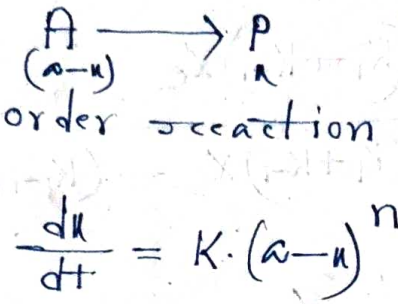 A ⟶ P
(a-x) x
order reaction
dx/dt = K.(a-x)^n